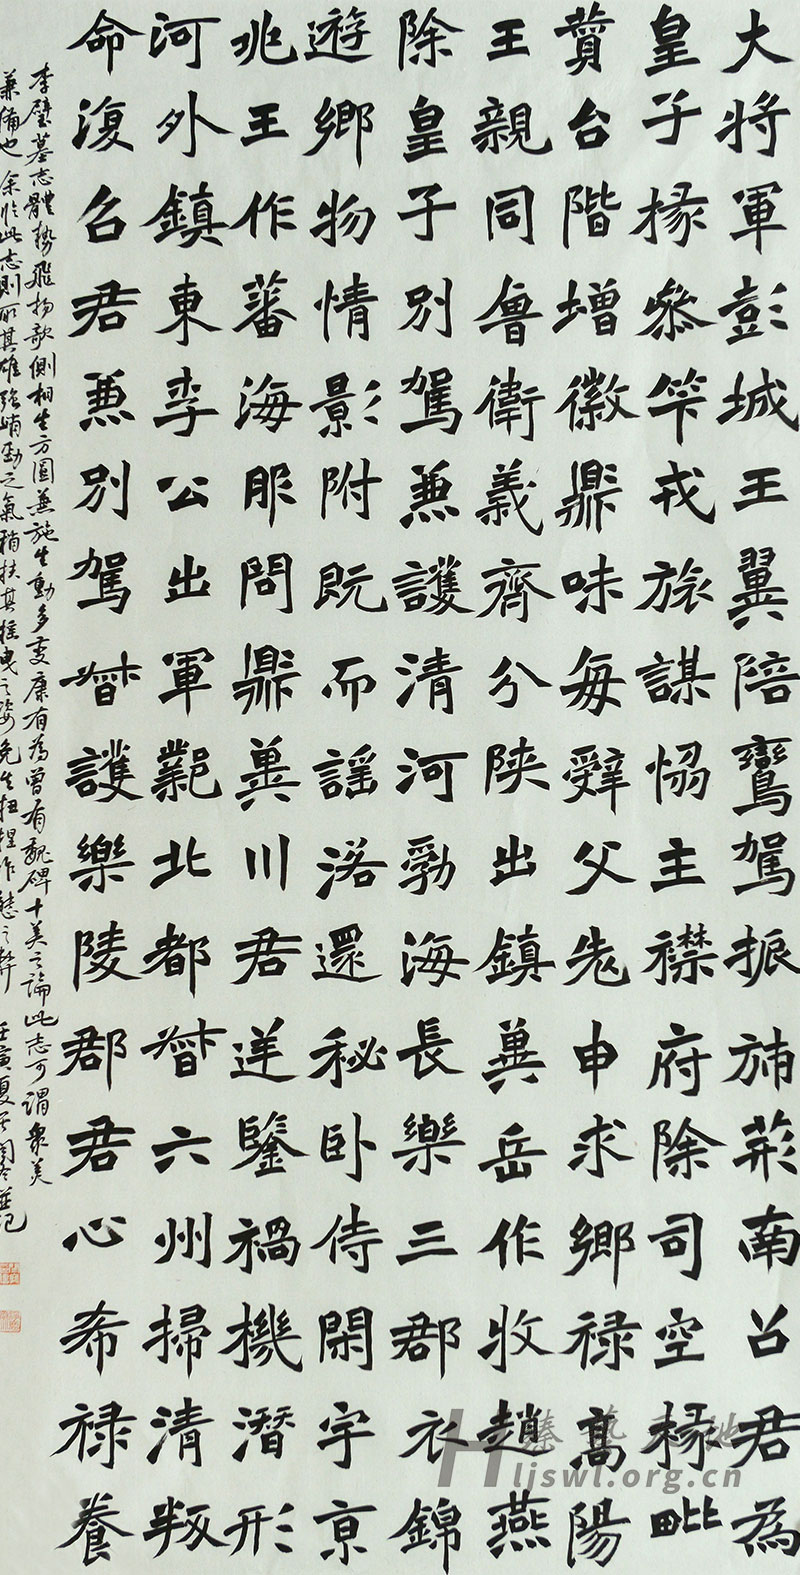 大將軍彭城王翼陪鸞駕振旆荊南召君為
皇子掾參竿戎旅謀恊主襟府除司空掾毗
贊台階增徽鼎味每辤父老申求鄉祿高陽
王親同魯衛義齊分陝出鎮冀岳作牧趙燕
除皇子別駕兼護清河勃海長樂三郡衣錦
遊鄉物情影附既而謠洛還秘卧侍閑宇京
兆王作蕃海服問鼎冀川君逆鑒禍機潛形
河外鎮東李公出軍薊北都督六州掃清叛
命復召君兼別駕督護樂陵郡君心希祿養
李璧墓志體勢飛揚欹側相生方圓兼施生動多變康有為曾有魏碑十美之論此志可謂眾美
兼備也余臨此志則取其雄強峭勁之氣稍扶其搖曳之姿免生扭捏作態之弊 壬寅夏
臻藝
Hljswl.org.cn